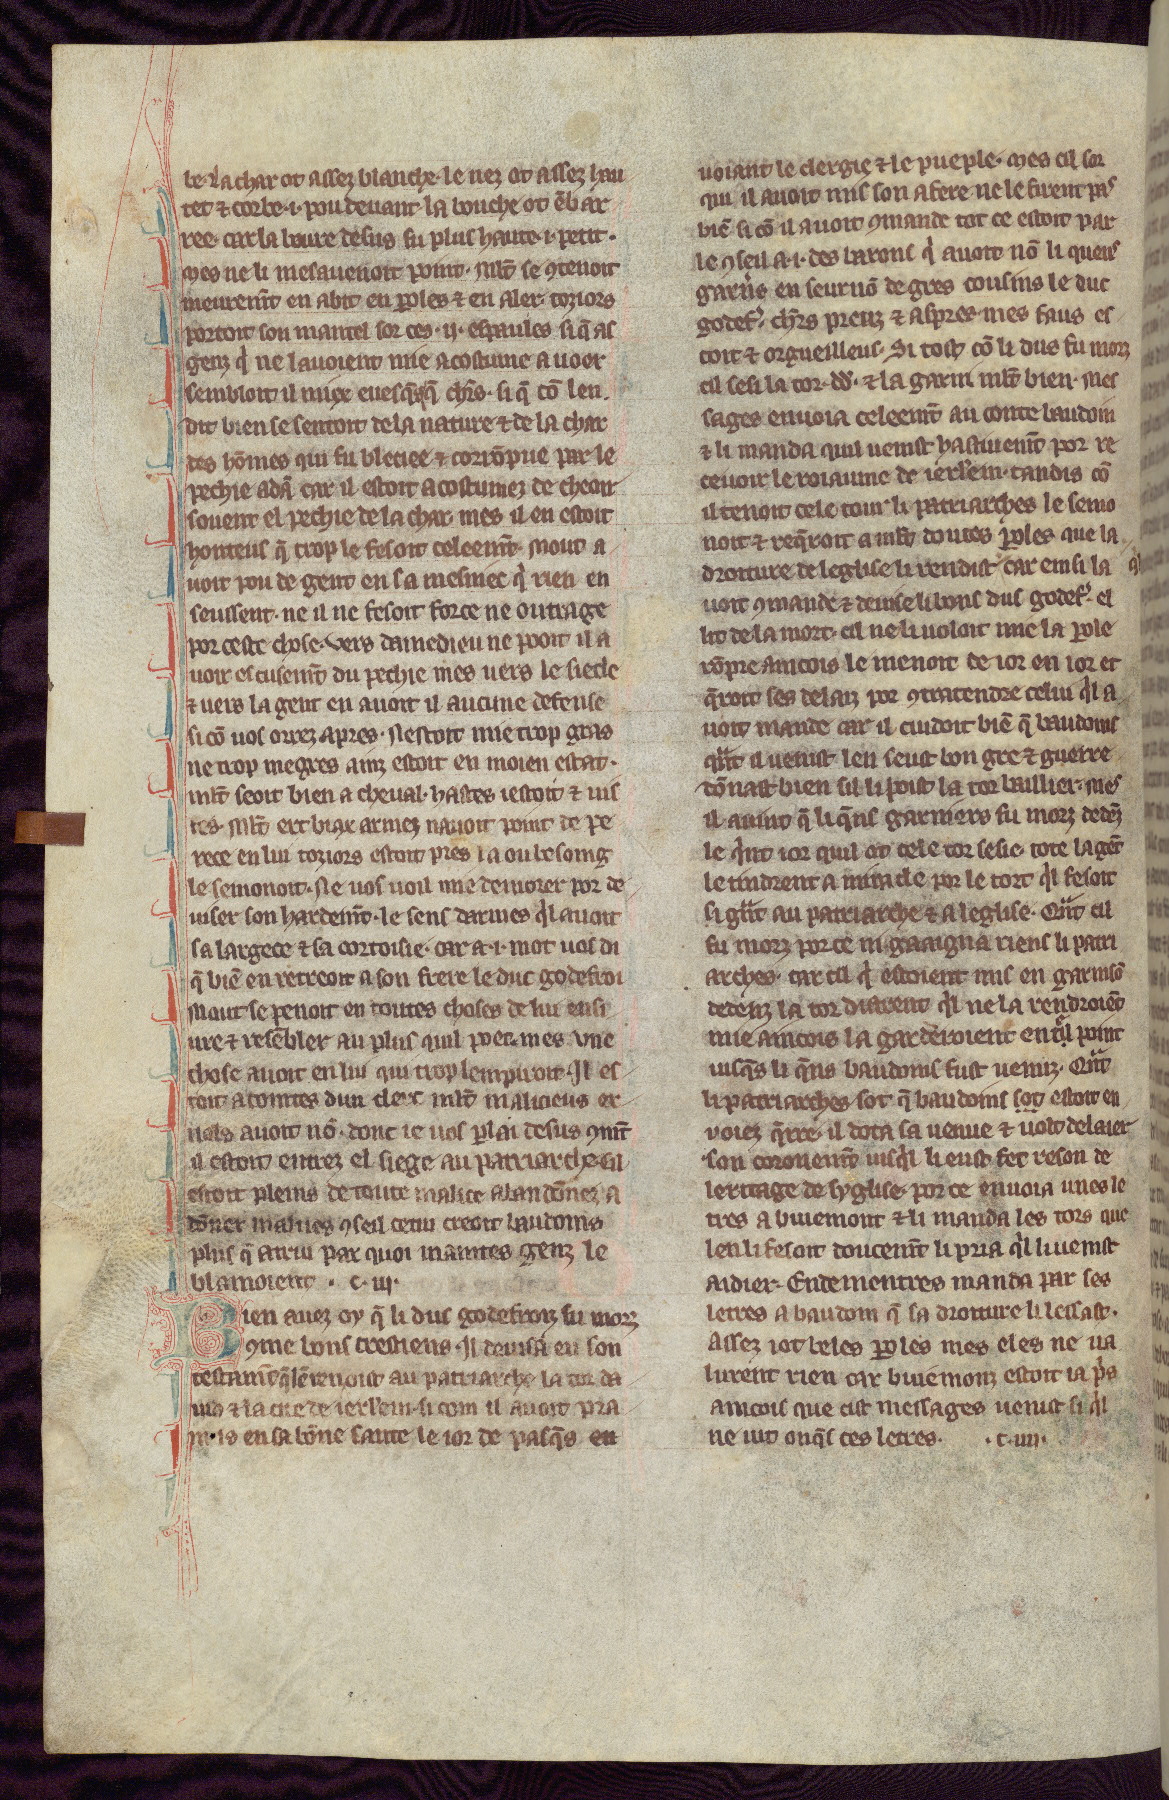 be. La char ot assez blanche. le nez ot assez hau
tet ⁊ corbe .i. pou devant la bouche ot ẽbar
ree. car la levre desus fu plus haute .i. petit.
Mes ne li mesavenoit point. Ml̃t se ꝯtenoit
meuremẽt en abit en ꝑoles ⁊ en aler. toziors
portoit son mantel sor ces .ij. espaules si q̃ as
genz q̇ ne lavoient mie acostume a veer
sembloit il miex evesq̃ q̃ chr̃s. si q̃ cõ len.
dit bien se sentoit de la nature ⁊ de la char
des hõmes qui fu bleciee ⁊ corrõpue par le
pechie adã car il estoit acostumez de cheoir
sovent el pechie de la char. mes il en estoit
honteus q̃ trop le fesoit celeemẽt. Mout a
voit pou de gent en sa mesniee q̇ rien en
seussent. ne il ne fesoit force ne outrage
por ceste chose. Vers damedieu ne pooit il a
voir escusemẽt du pechie mes vers le siecle
⁊ vers la gent en avoit il aucune defense
si cõ vos orrez apres. Nestoit mie trop gras
ne trop megres ainz estoit en moien estat.
ml̃t seoit bien a cheval. hastes iestoit ⁊ vis
tes. Ml̃t ert biax armez navoit point de pe
rece en lui toziors estoit pres la ou besoing
le semonoit. Ne vos voil mie demorer por de
viser son hardemẽt. le sens darmes q̇l avoit
sa largece ⁊ sa cortoisie. car a .i. mot vos di
q̃ biẽ en retreoit a son frere le duc godefroi
Mout se penoit en toutes choses de lui ensi
vre ⁊ resẽbler au plus quil poet. mes une
chose avoit en lui qui trop lempiroit. Il es
toit acointes dun clerc ml̃t malicieus er
nols avoit nõ. donc ie vos ꝑlai desus ꝯmẽt
il estoit entrez el siege au patriarche. cil
estoit pleins de toute malice abandõnez a
dõner malves ꝯseil cetui creoit baudoins
plus q̃ autrui par quoi maintes genz le
blamoient. .C. iij.
Bien avez oy q̃ li dus godefroiz fu morz
ꝯme bons crestiens. Il devisa en son
testamẽt q̃ len rendist au patriarche la tor da
vid ⁊ la cite de ierl'em. si com il avoit pra
mis en sa bõne sante le ior de pasq̃s en
voiant le clergie ⁊ le pueple. Mes cil sor
qui il avoit mis son afere ne le firent pas
biẽ si cõ il avoit ꝯmande tot ce estoit par
le ꝯseil a .i. des barons q̇ avoit nõ li quens
garñs en seurnõ de gres cousins le duc
godef'. chr̃s preuz ⁊ aspres. mes faus es
toit ⁊ orgueilleus. Si tost cõ li dus fu morz
cil sesi la tor .dd'. ⁊ la garni ml̃t bien. Mes
sages envoia celeemẽt au conte baudoin
⁊ li manda quil venist hastivemẽt por re
cevoir le roiaume de ierl'em. tandis cõ
il tenoit cele tour li patriarches le semo
noit ⁊ req̃roit a ml̃t doutes ꝑoles que la
droiture de leglise li rendist. car einsi la q̇l
voit ꝯmande ⁊ devise li bons dus godef'. el
lit de la mort. cil ne li voloit mie la ꝑole
rõpre aincois le menoit de ior en ior et
q̃roit ses delaiz por ꝯtratendre celui q̇l a
voit mande car il cuidoit biẽ q̃ baudoins
qñt il venist len seust bon gre ⁊ guerre
dõnast bien sil li poist la tor baillier. Mes
il avint q̃ li q̃ns garniers fu morz dedẽz
le q̇nt ior quil ot cele tor sesie. tote la gẽt
le tindrent a miracle por le tort q̇l fesoit
si gñt au patriarche ⁊ a leglise. Qñt cil
fu morz por ce ni gaaigna riens li patri
arches. car cil q̇ estoient mis en garnisõ
dedenz la tor distrent q̇l ne la rendroiẽt
mie aincois la garderoient en tel point
iusq̃s li q̃ns baudoins fust venuz. Qñt
li patriarches sot q̃ baudoins sot estoit en
voiez q̃rre. il dota sa venue ⁊ volt delaier
son coronemẽt iusq̇l li eust fet reson de
leritage de lyglise. por ce envoia unes le
tres a buiemont ⁊ li manda les tors que
len li fesoit doucemẽt li pria q̇l li venist
aidier. Endementres manda par ses
letres a baudoin q̃ sa droiture li lessast.
Assez iot beles ꝑoles mes eles ne va
lurent rien car buiemonz estoit ia p̃s
aincois que cist messages venist si q̇l
ne vit onq̃s ces letres. .C. iiij.